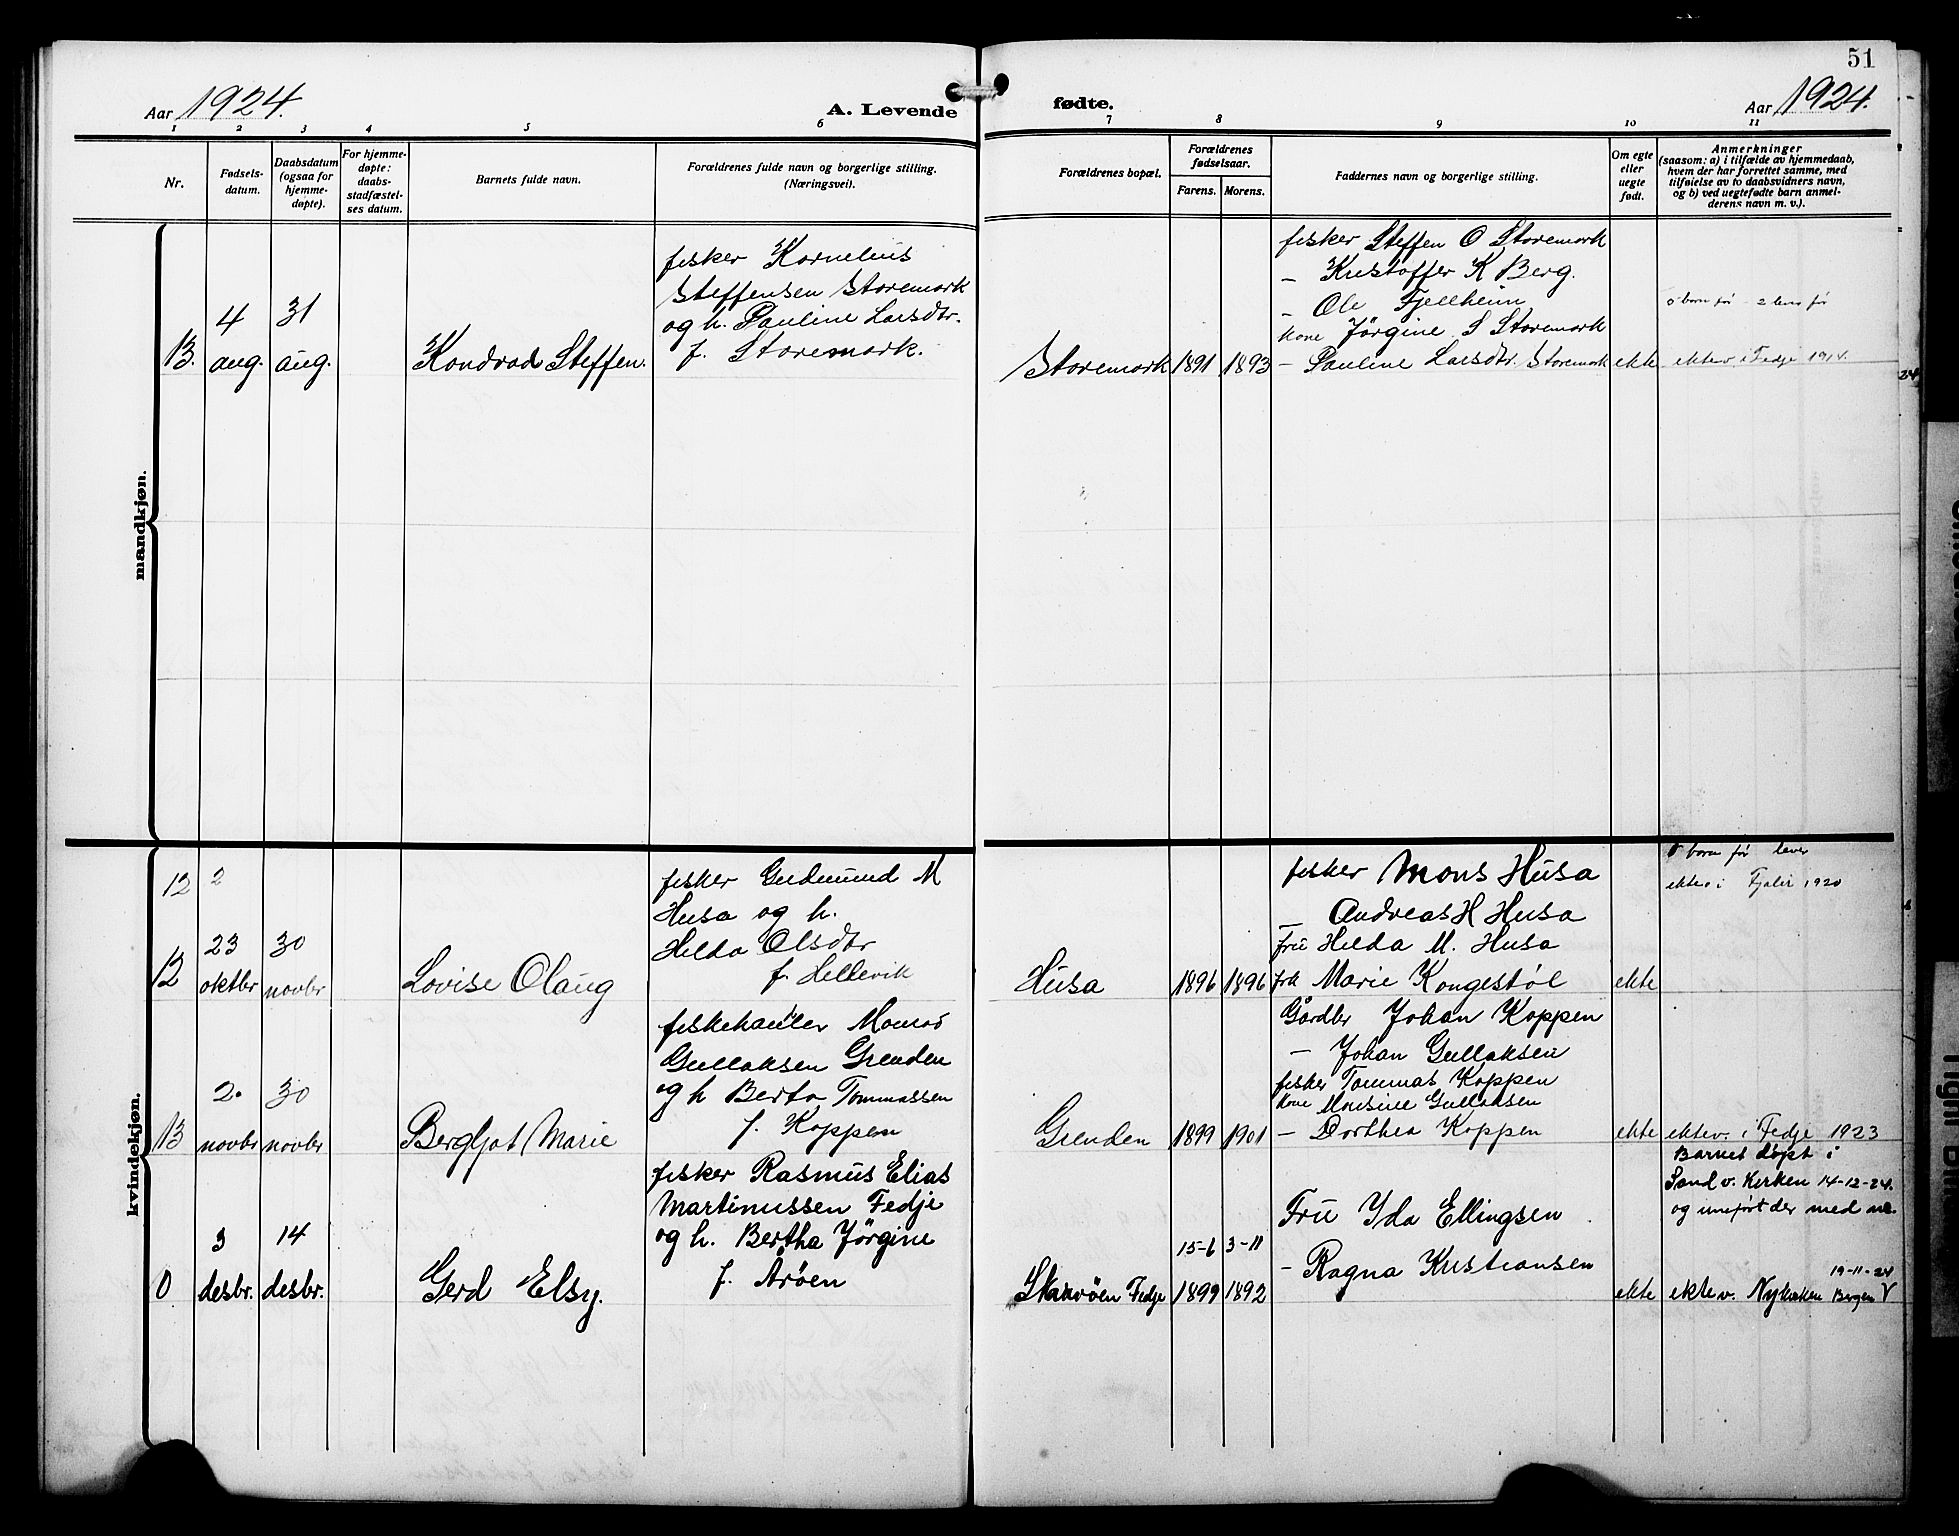 51
Aar 1924.
A. Levende
fødte.
Aar 1924.
1 2 3 4 5 6 7 8 9 10 11
Nr.
Fødsels-
datum.
Daabsdatum
(ogsaa for
hjemme-
døpte).
For hjemme-
døpte:
daabs-
stadfæstel-
ses datum.
Barnets fulde navn.
Forældrenes fulde navn og borgerlige stilling.
(Næringsvei).
Forældrenes bopæl.
Forældrenes
fødselsaar.
Farens. Morens.
Faddernes navn og borgerlige stilling.
Om egte
eller
uegte
født.
Anmerkninger
(saasom: a) i tilfælde av hjemmedaab,
hvem der har forrettet samme, med
tilføielse av to daabsvidners navn,
og b) ved uegtefødte barn anmel-
derens navn m. v.).
mandkjøn.
13.
4
aug.
31
aug.
Kondrad Steffen.
fisker Kornelius
Steffensen Storemark
og h. Pauline Larsdtr.
f. Storemark.
Storemark
1891
1893
fisker Steffen O Storemark
- Kristoffer K Berg.
- Ole Fjellheim
kone Jörgine S Storemark
- Pauline Larsdtr. Storemark
ekte
born før - 2 lever før
ektev. i Fedje 1914.
24
kvindekjøn.
12 2
12
23
oktbr
30
novbr
Lovise Olaug
fisker Gudmund M
Husa og h.
Hilda Olsdtr
f. Hellevik
Husa
1896
1896
fisker Mons Husa
- Andreas H Husa
fru Hilda M. Husa
frk Marie Kongestøl
ekte
born før lever
ektev i Fjaler 1920
13
2.
novbr
30
novbr
Bergljot Marie
fiskehandler Monas
Gullaksen Grenden
og h Berta Tommassen
f. Koppen
Grenden
1899
1901
Gårdbr Johan Koppen
- Johan Gullaksen
fisker Tommas Koppen
kone Monsine Gullaksen
- Dorthea Koppen
ekte
ektev. i Fedje 1923
0
3
desbr.
14
desbr.
Gerd Elsy.
fisker Rasmus Elias
Martinussen Fedje
og h. Bertha Jörgine
f. Arøen
Skarvøen Fedje
15-6
1899
3-11
1892
Fru Ida Ellingsen
- Ragna Kristiansen
ekte
Barnet døpt i
Sand v. Kirken 14-12-24.
og innført der med nr.
19-11-24
ektev. Nykirken Bergen